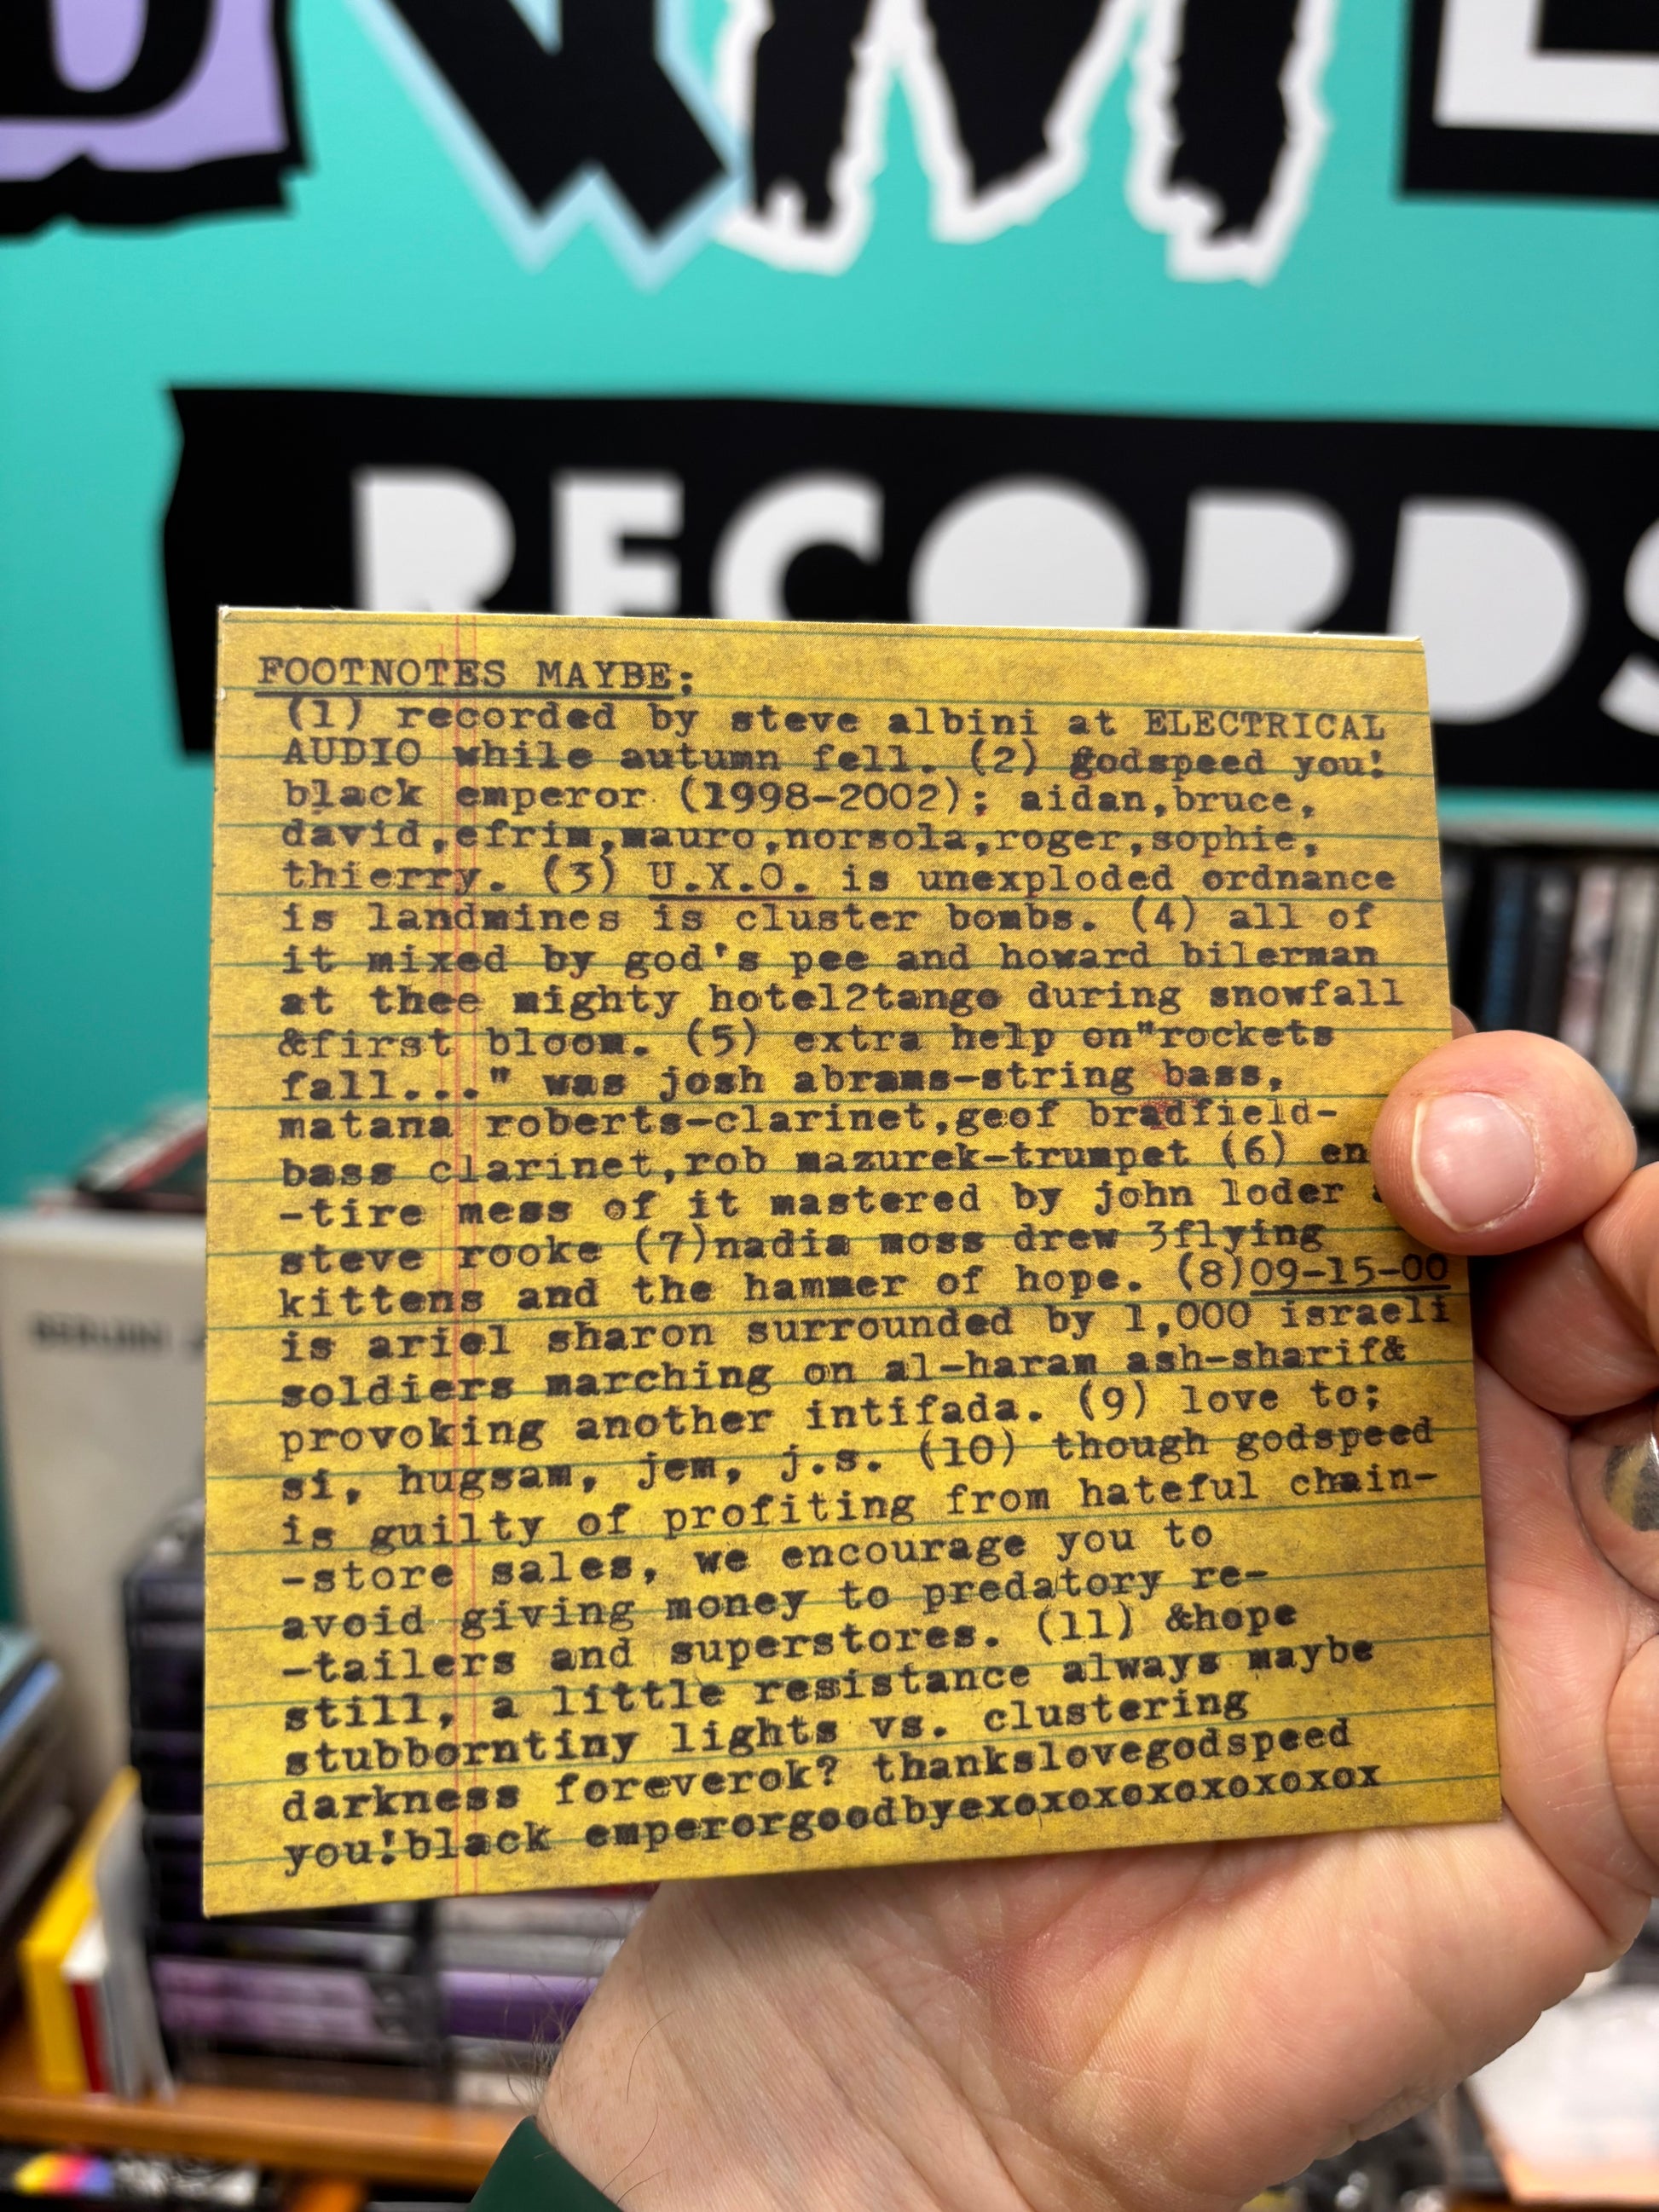 RECORDS
FOOTNOTES MAYBE;
(1) recorded by steve albini at ELECTRICAL
AUDIO while autumn fell. (2) godspeed you!
black emperor (1998-2002); aidan,bruce,
david,efrim,mauro,norsola,roger,sophie,
thierry. (3) U.X.O. is unexploded ordnance
is landmines is cluster bombs. (4) all of
it mixed by god's pee and howard bilerman
at thee mighty hotel2tango during snowfall
&first bloom. (5) extra help on"rockets
fall..." was josh abrams-string bass,
matana roberts-clarinet,geof bradfield-
bass clarinet,rob mazurek-trumpet (6) en
-tire mess of it mastered by john loder
steve rooke (7)nadia moss drew 3flying
kittens and the hammer of hope. (8)09-15-00
is ariel sharon surrounded by 1,000 israeli
soldiers marching on al-haram ash-sharif&
provoking another intifada. (9) love to;
si, hugsam, jem, j.s. (10) though godspeed
is guilty of profiting from hateful chain-
-store sales, we encourage you to
avoid giving money to predatory re-
-tailers and superstores. (11) &hope
still, a little resistance always maybe
stubborntiny lights vs. clustering
darkness foreverok? thankslovegodspeed
you!black emperorgoodbyexoxoxoxoxoxoxox